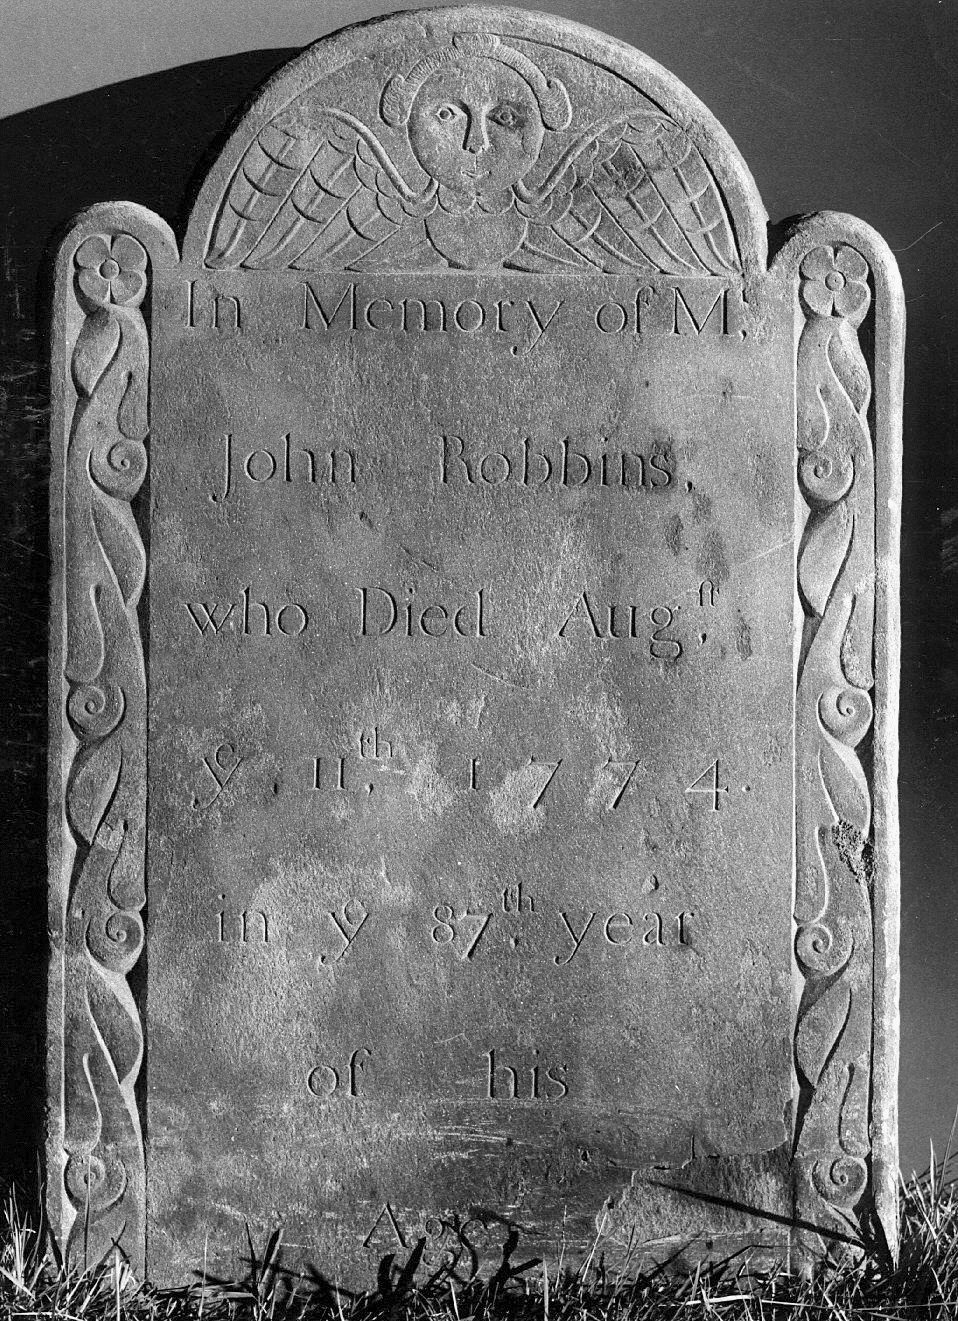 In Memory of Mr,
John Robbins,
who Died Augst,
ye 11th, 1774.
in ye 87th, year
of his
Age